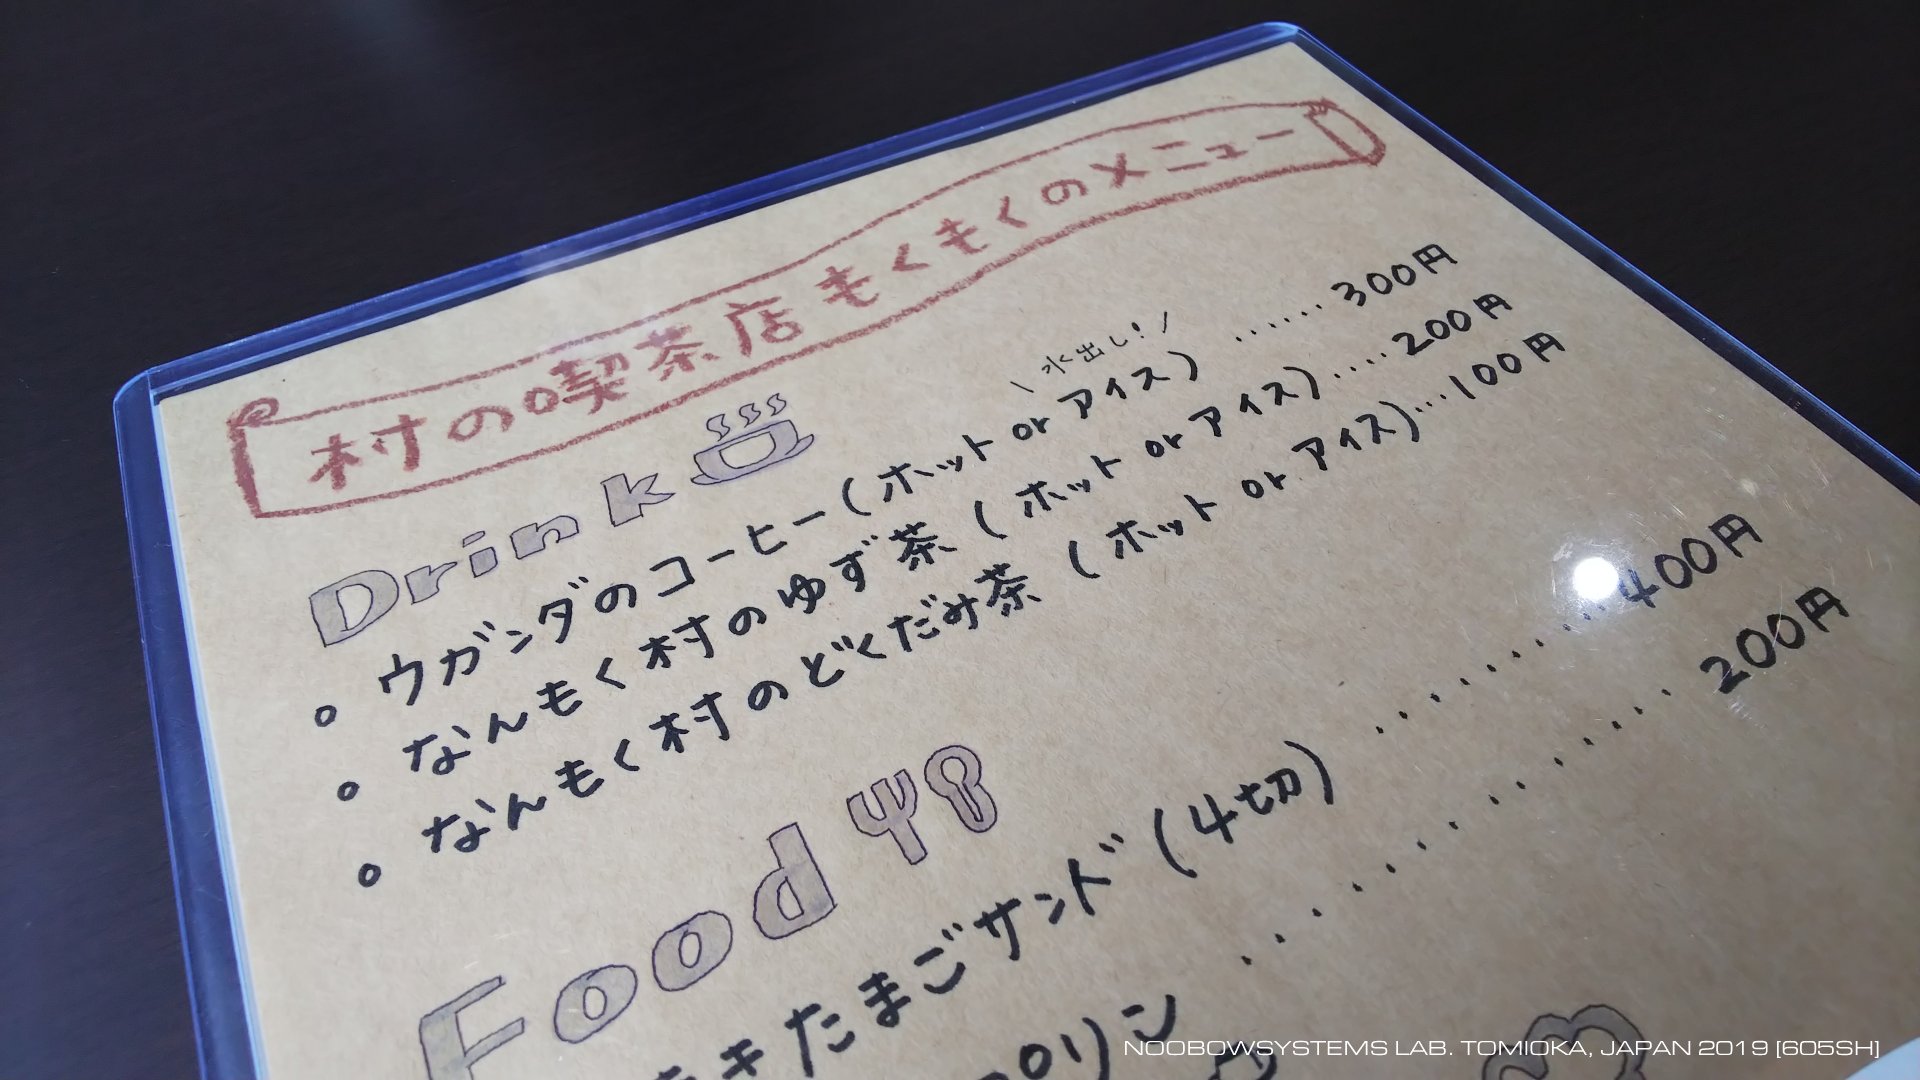 村の喫茶店もくもくのメニュー
Drink
\水出し!/
。ウガンダのコーヒー(ホット or アイス) ......300円
。なんもく村のゆず茶(ホット or アイス)....200円
。なんもく村のどくだみ茶(ホット or アイス)...100円
Food
きたまごサンド(4切) ..........400円
プリン ..............200円
NOOBOWSYSTEMS LAB. TOMIOKA, JAPAN 2019 [605SH]